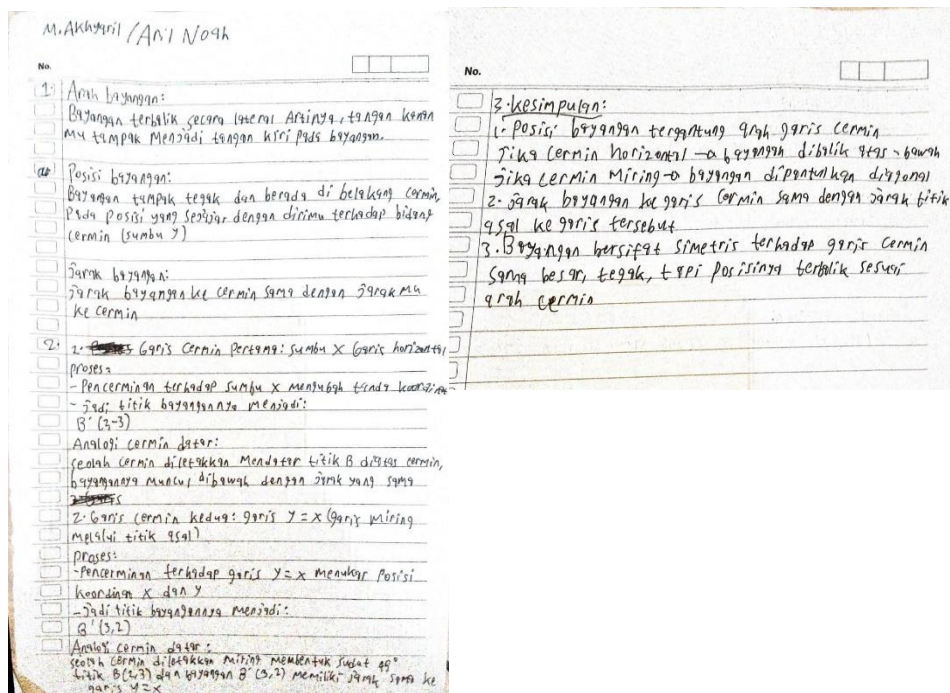 M. Akhyaril / Aril Noah
No.
1. Arah bayangan:
Bayangan terbalik secara lateral Artinya, tangan kanan
mu tampak menjadi tangan kiri pada bayangan.
Posisi bayangan:
Bayangan tampak tegak dan berada di belakang cermin,
Pada posisi yang sejajar dengan dirimu terhadap bidang
cermin (sumbu y)
Jarak bayangan:
Jarak bayangan ke cermin sama dengan jarak mu
ke cermin
2. 1. Garis Cermin Pertama: sumbu X Garis horizontal
Proses:
- Pencerminan terhadap sumbu X mengubah tanda
- Jadi titik bayangannya menjadi:
B' (2,-3)
Analogi cermin datar:
seolah cermin diletakkan Mendatar titik B diatas cermin,
bayangannya muncul dibawah dengan jarak yang sama
2. Garis cermin kedua: garis y = x (garis miring
melalui titik asal)
Proses:
- Pencerminan terhadap garis y = x menukar Posisi
koordinan x dan y
- Jadi titik bayangannya menjadi:
B' (3,2)
Analogi cermin datar:
seolah cermin diletakkan miring membentuk sudut
titik B(2,3) dan bayangan B' (3,2) memiliki jarak sama ke
garis y = x
No.
3. kesimpulan:
1. Posisi bayangan tergantung arah garis cermin
Jika cermin horizontal → bayangan dibalik atas - bawah
Jika cermin Miring → bayangan dipantulkan diagonal
2. Jarak bayangan ke garis cermin sama dengan jarak titik
asal ke garis tersebut
3. Bayangan bersifat simetris terhadap garis cermin
sama besar, tegak, tapi posisinya terbalik sesuai
arah cermin